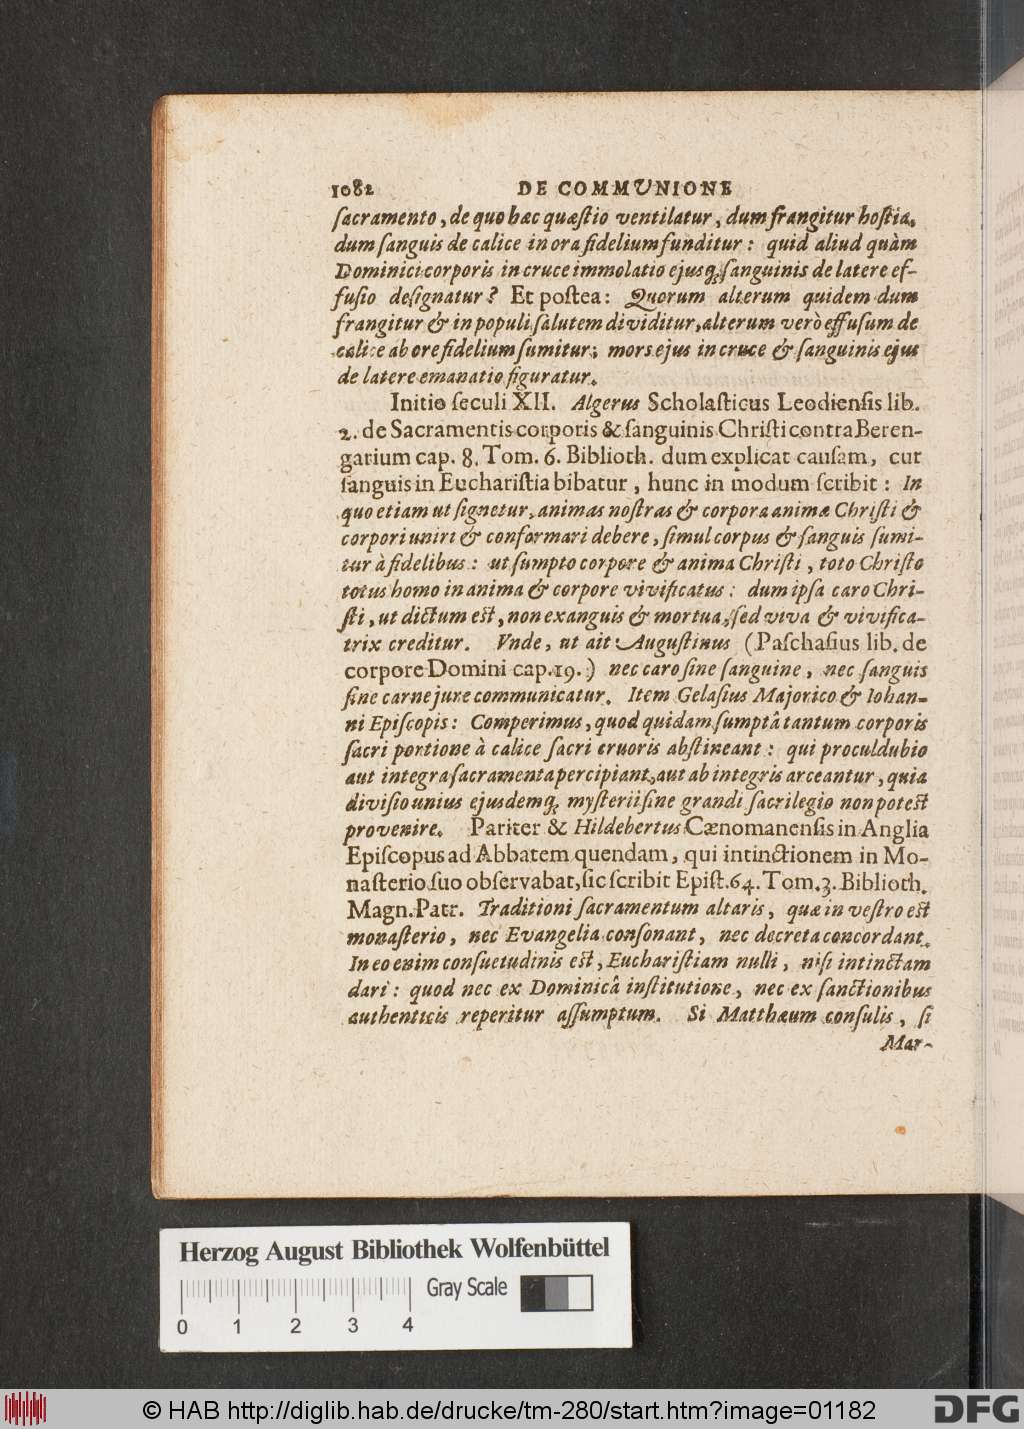 1082 DE COMMVNIONE
ſacramento, de quo hæc quæſtio ventilatur, dum frangitur hoſtia,
dum ſanguis de calice in ora fidelium funditur: quid aliud quàm
Dominici corporis in cruce immolatio ejusq́; ſanguinis de latere ef-
fuſio deſignatur? Et poſtea: Quorum alterum quidem dum
frangitur & in populi ſalutem dividitur, alterum verò effuſum de
calice ab ore fidelium ſumitur; mors ejus in cruce & ſanguinis ejus
de latere emanatio figuratur.
Initio ſeculi XII. Algerus Scholaſticus Leodienſis lib.
2. de Sacramentis corporis & ſanguinis Chriſti contra Beren-
garium cap. 8. Tom. 6. Biblioth. dum explicat cauſam, cur
ſanguis in Euchariſtia bibatur, hunc in modum ſcribit: In
quo etiam ut ſignetur, animas noſtras & corpora animæ Chriſti &
corpori uniri & conformari debere, ſimul corpus & ſanguis ſumi-
tur à fidelibus: ut ſumpto corpore & anima Chriſti, toto Chriſto
totus homo in anima & corpore vivificatus: dum ipſa caro Chri-
ſti, ut dictum est, non exanguis & mortua, ſed viva & vivifica-
trix creditur. Vnde, ut ait Auguſtinus (Paſchaſius lib. de
corpore Domini cap. 19.) nec caro ſine ſanguine, nec ſanguis
ſine carne jure communicatur. Item Gelaſius Majorico & Iohan-
ni Epiſcopis: Comperimus, quod quidam ſumptâ tantum corporis
ſacri portione à calice ſacri cruoris abſtineant: qui proculdubio
aut integra ſacramenta percipiant, aut ab integris arceantur, quia
diviſio unius ejusdemq́; myſterii ſine grandi ſacrilegio non potest
provenire. Pariter & Hildebertus Cænomanenſis in Anglia
Epiſcopus ad Abbatem quendam, qui intinctionem in Mo-
naſterio ſuo obſervabat, ſic ſcribit Epiſt. 64. Tom. 3. Biblioth.
Magn. Patr. Traditioni ſacramentum altaris, quæ in veſtro est
monaſterio, nec Evangelia conſonant, nec decreta concordant.
In eo enim conſuetudinis est, Euchariſtiam nulli, niſi intinctam
dari: quod nec ex Dominicâ inſtitutione, nec ex ſanctionibus
authenticis reperitur aſſumptum. Si Matthæum conſulis, ſi
Mar-
Herzog August Bibliothek Wolfenbüttel
Gray Scale
0 1 2 3 4
© HAB http://diglib.hab.de/drucke/tm-280/start.htm?image=01182
DFG